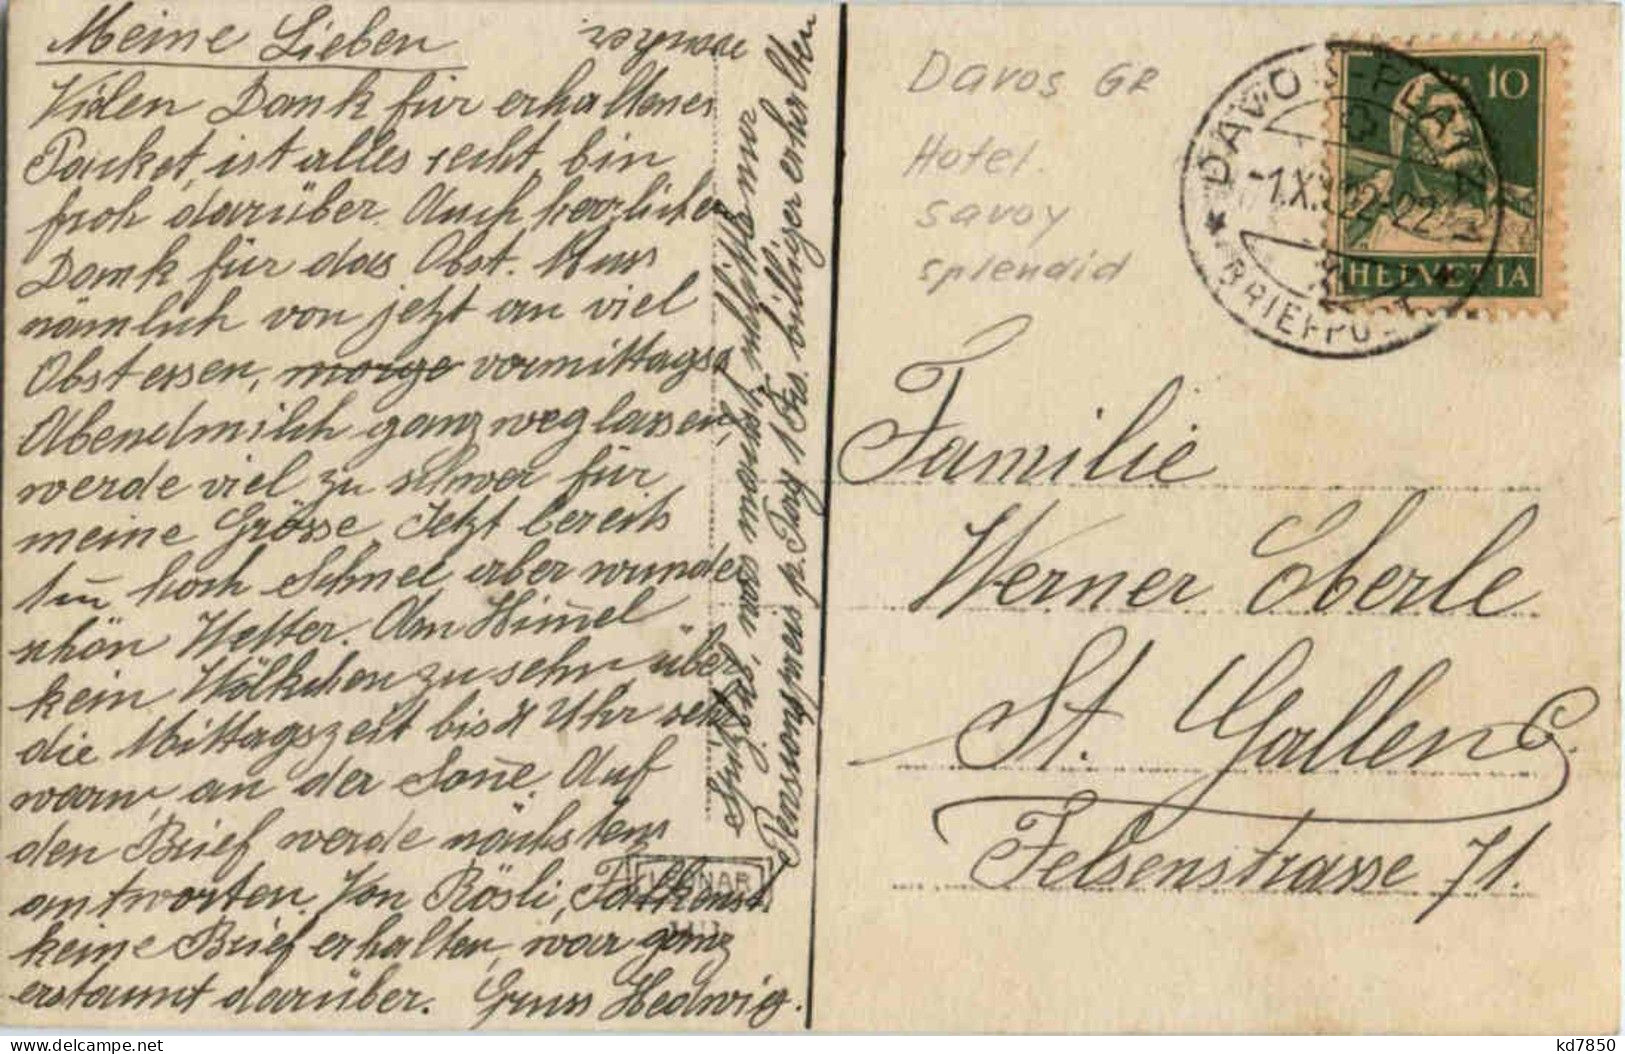 Meine Lieben
Vielen Dank für erhaltenes
Packet, ist alles recht, bin
froh darüber. Auch herzlichen
Dank für das Obst. Muss
nämlich von jetzt an viel
Obst essen, morge vormittags
Abendmilch ganz weglassen,
werde viel zu schwer für
meine Grösse. Jetzt bereits
1 m̄ hoch Schnee aber wunder
schön Wetter. Am Him̄el
kein Wölkchen zu sehn, über
die Mittagszeit bis 4 Uhr sehr
warm, an der Son̄e. Auf
den Brief werde nächstens
antworten. Von Rösli, Falkenst.
keine Brief erhalten, war ganz
erstaunt darüber. Gruss Hedwig.
Pensionspreis p. Tag 1 Frs. billiger erhalten
LEONAR
Davos GR
Hotel.
Savoy
Splendid
DAVOS-PLATZ
22-22
BRIEFPOST
10
HELVETIA
Familie
Werner Eberle
St. Gallen C.
Felsenstrasse 71.
kd7850